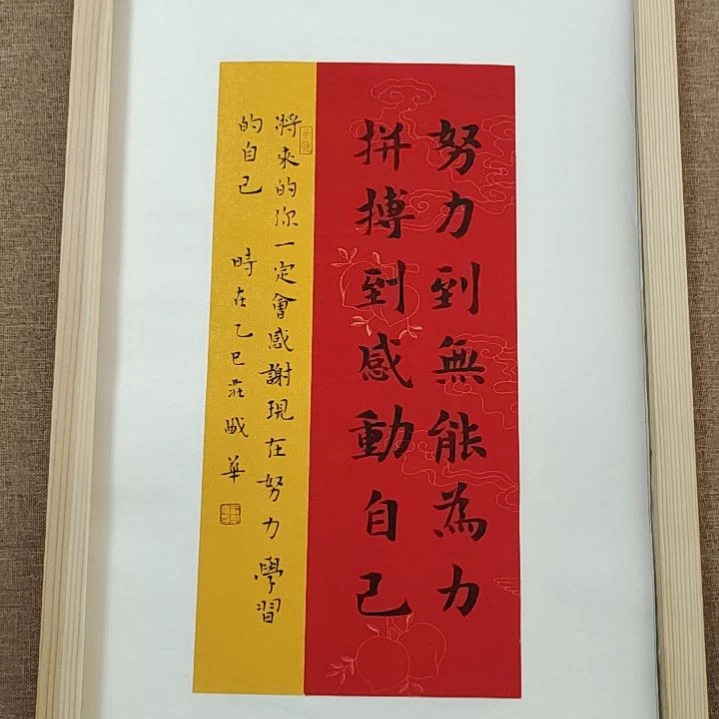 努力到無能為力
拼搏到感動自己
將來的你一定會感謝現在努力學習
的自己 時在乙巳莊
華